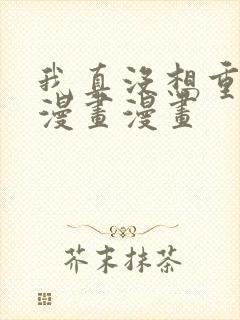 我真没想重
漫畫漫畫
芥末抹茶